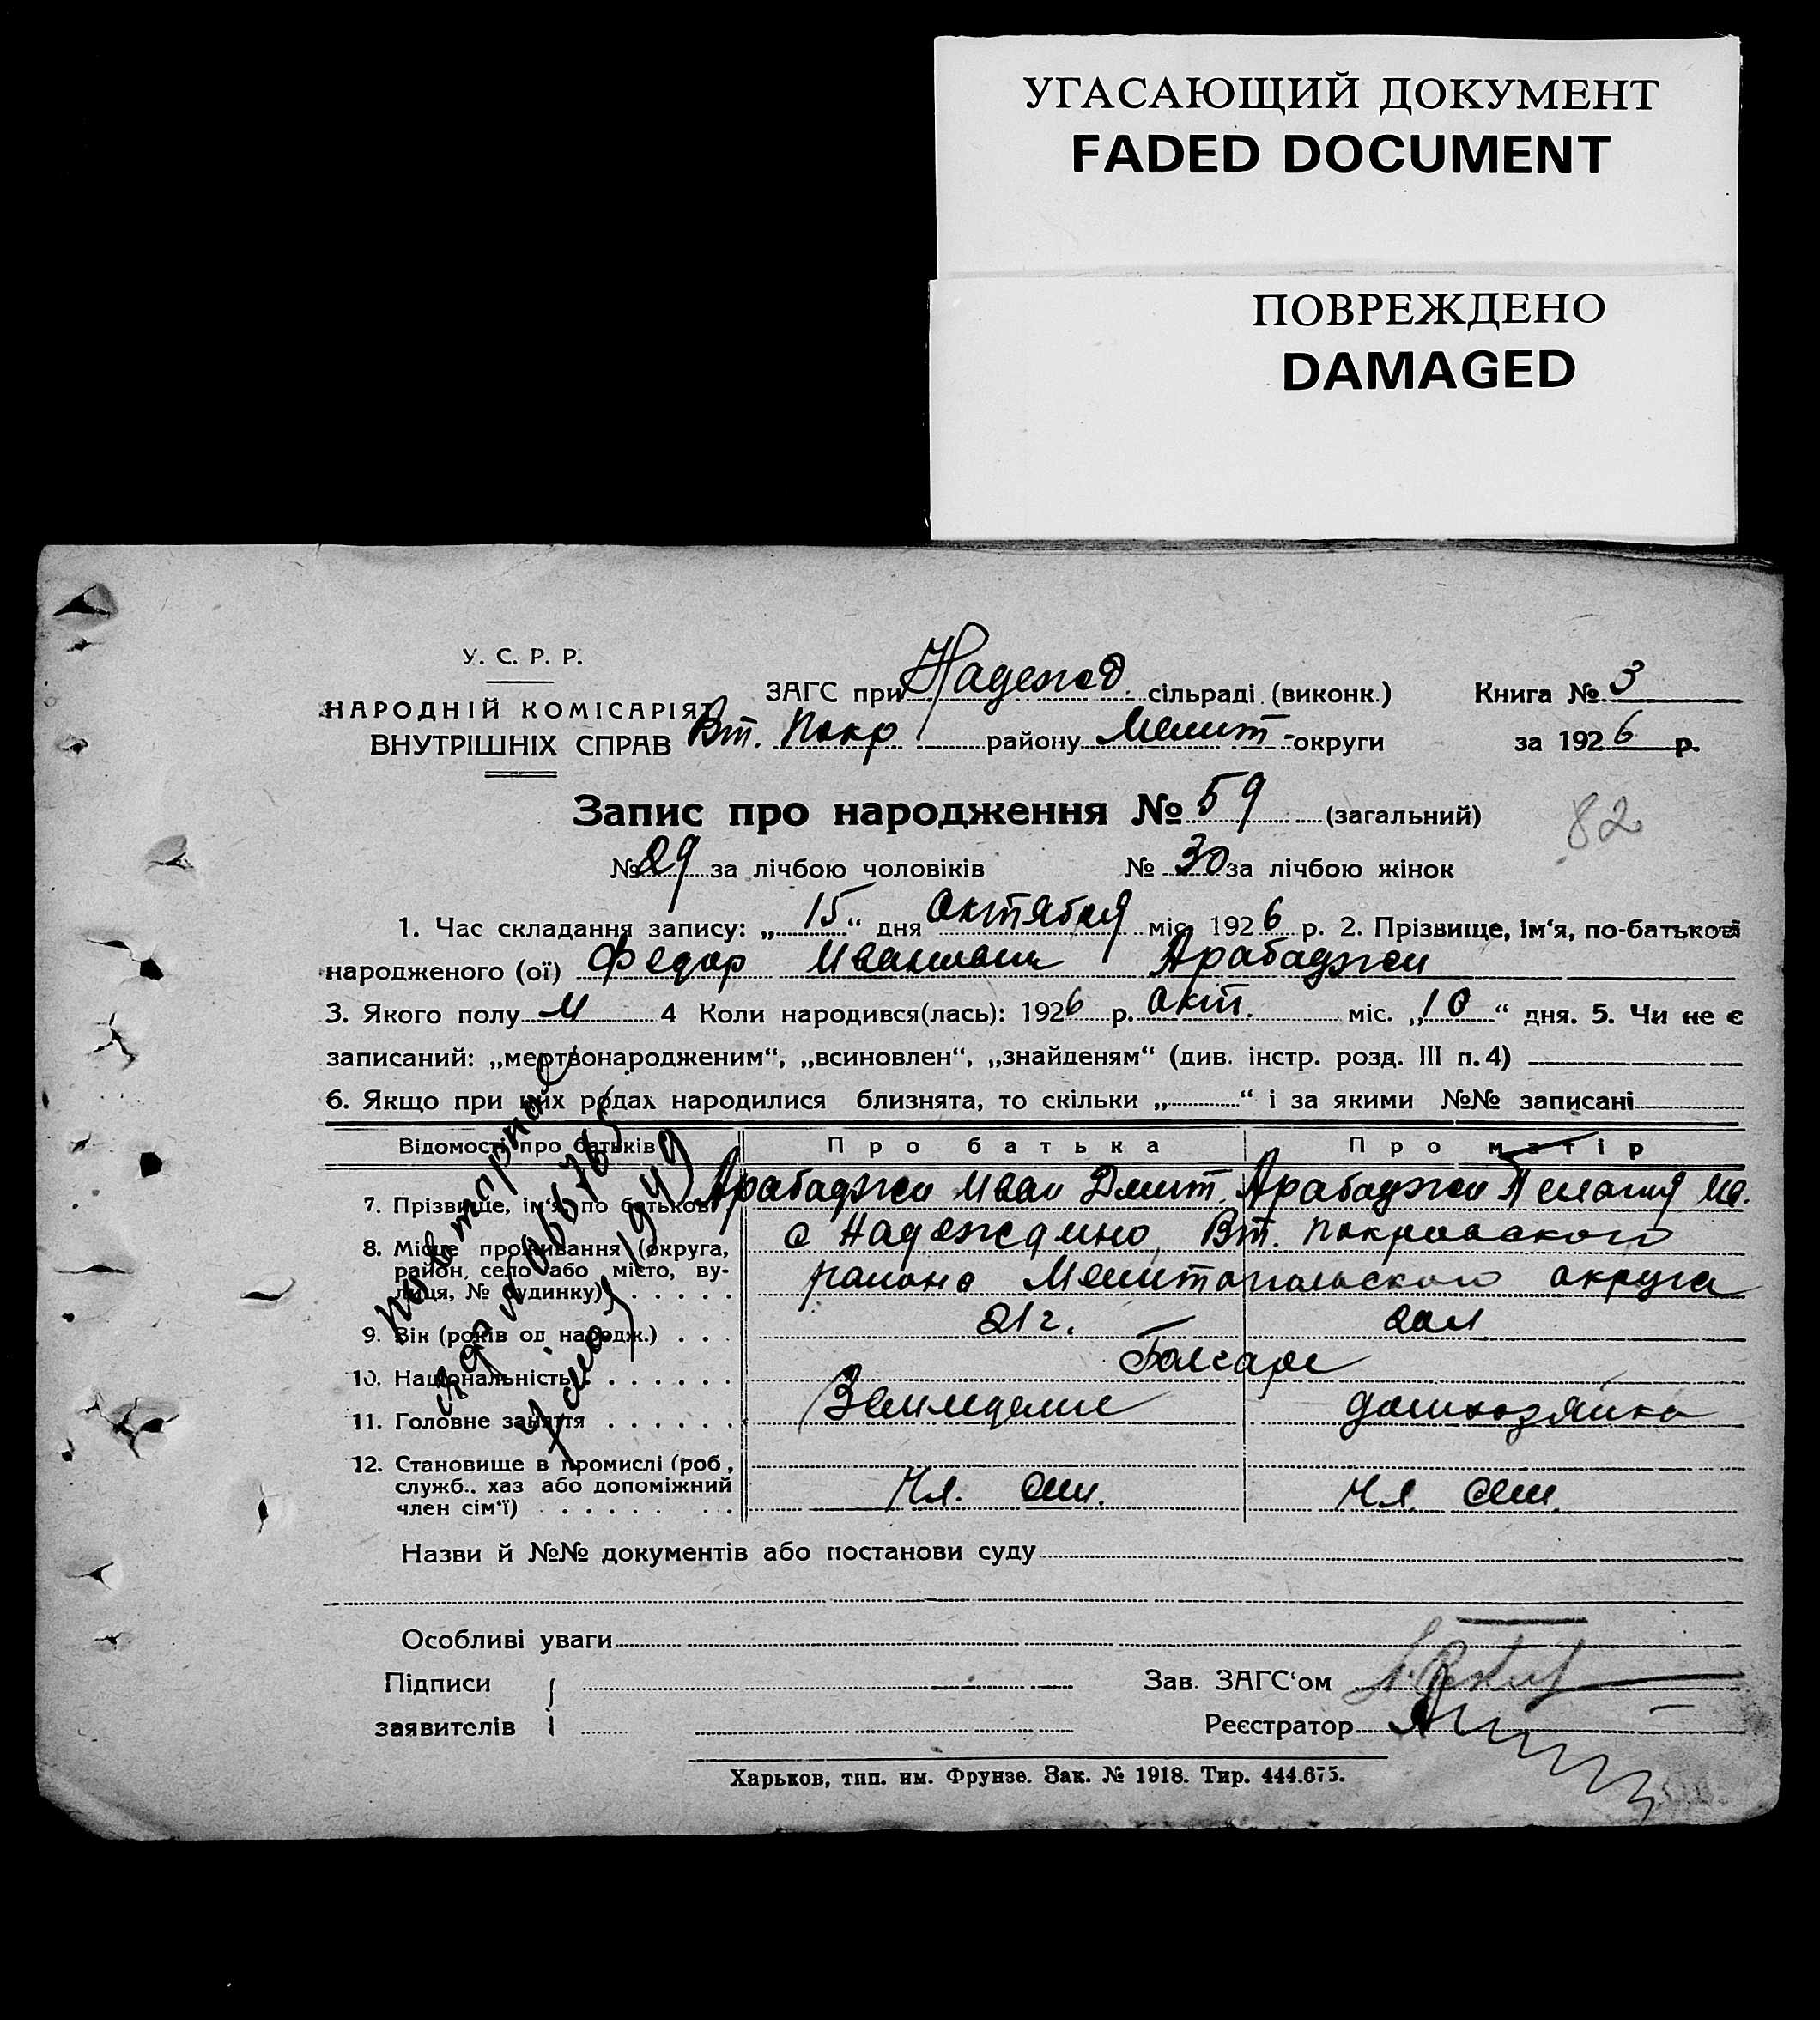 УГАСАЮЩИЙ ДОКУМЕНТ
FADED DOCUMENT
ПОВРЕЖДЕНО
DAMAGED
У. С. Р. Р.
НАРОДНІЙ КОМІСАРІЯТ
ВНУТРІШНІХ СПРАВ
ЗАГС при Надежд. сільраді (виконк.) Книга № 3
Вт. Покр району Мелит округи за 1926 р.
Запис про народження № 59 (загальний)
82
№ 29 за лічбою чоловіків № 30 за лічбою жінок
1. Час складання запису: „15“ дня октября міс 1926 р. 2. Прізвище, ім‘я, по-батькові
народженого (ої) Федор Иванович Арабаджи
3. Якого полу М 4 Коли народився(лась): 1926 р. окт. міс. „10“ дня. 5. Чи не є
записаний: „мертвонародженим“, „всиновлен“, „знайденям“ (див. інстр. розд. III п. 4)
6. Якщо при цих родах народилися близнята, то скільки „ “ і за якими №№ записані
Відомості про батьків Про батька Про матір
7. Прізвище, ім‘я, по батькові Арабаджи Иван Дмит. Арабаджи Пелагия Ив.
8. Місце проживання (округа, с Надеждино, Вт. Покровского
район, село або місто, ву-
лиця, № будинку) района Мелитопольского округа
9. Вік (років од народж.) 21 г. 20 л
10. Національність Болгаре
11. Головне заняття Земледелие домхозяйка
12. Становище в промислі (роб,
служб., хаз або допоміжний
член сім‘ї) Чл. сем. Чл. сем.
повторное
Назви й №№ документів або постанови суду
Особливі уваги
Підписи Зав. ЗАГС‘ом
заявителів Реєстратор
Харьков, тип. им. Фрунзе. Зак. № 1918. Тир. 444.675.